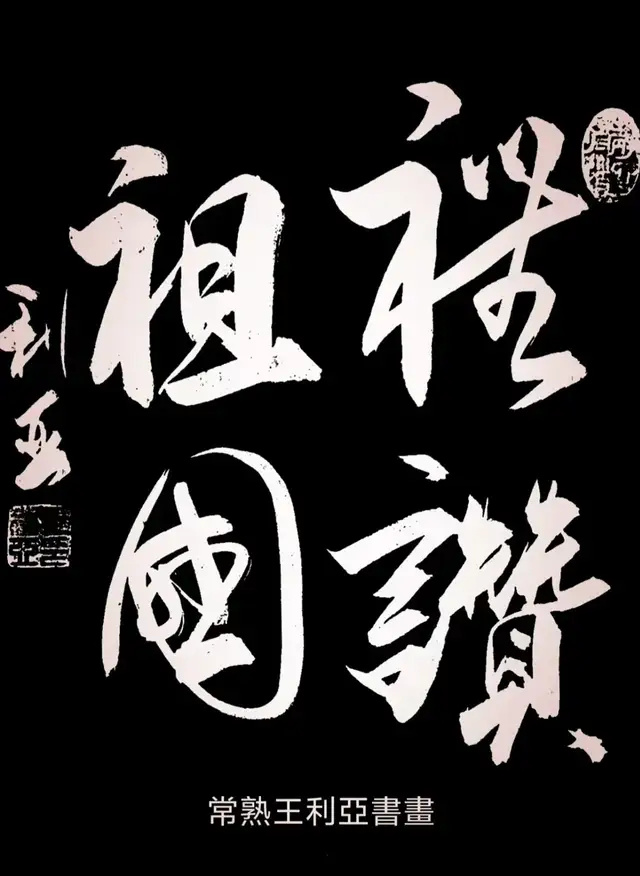 禮讚
祖國
利亞
常熟王利亞書畫